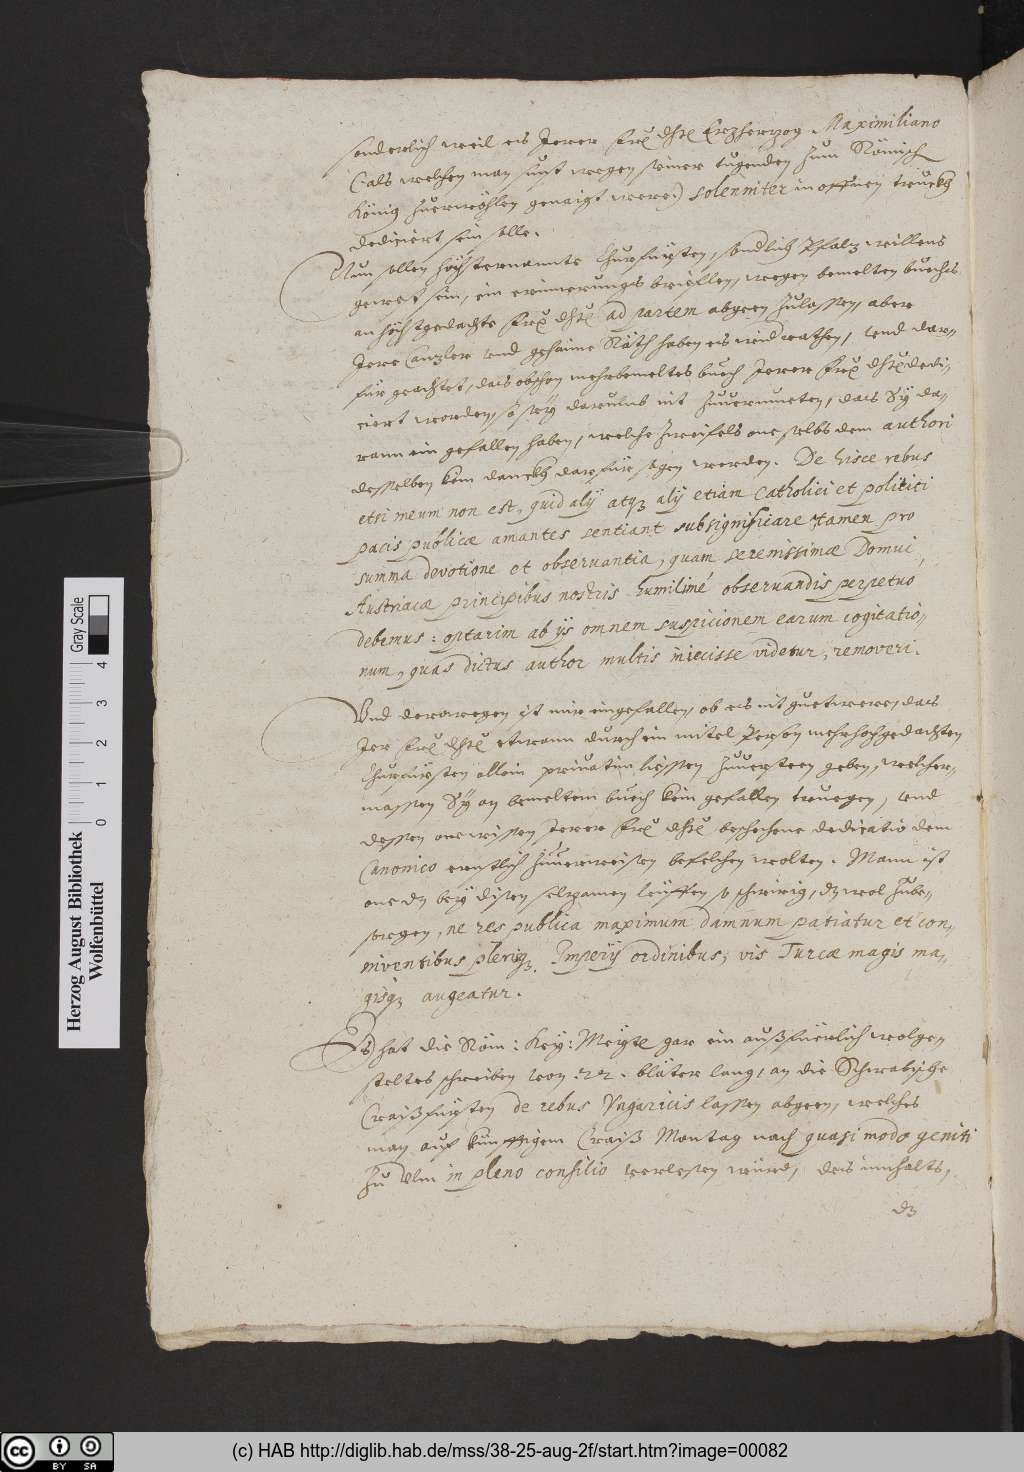 sonderlich weil es Jerer Fr: Dhr: Erzherzog Maximiliano
(als welchen man sunst wegen seiner tugenden zum Römisch
König zuerwöhlen genaigt were) solenniter in offnen truckh
dediciert sein solle.
Nun sollen höchsternannte Churfürsten, sondlich Pfalz willens
gewest sein, ein erinnerungs brieflen, wegen bemelten buechs
an höchstgedachte Fr: Dhr: ad partem abgeen zulassen, aber
Jere Canzler vnd gehaime Räth haben es widrathen, vnd dar-
für geachtet, das obschon mehrbemeltes buech Jerer Fr: Dhr: dedi-
ciert worden, so sey darumb nit zuuermueten, das Sy da-
rann ein gefallen haben, welche zweifels one selbs dem authori
desselben kein danckh darfür sagen werden. De hisce rebus
etsi meum non est, quid alij atq3 alij etiam Catholici et politici
pacis publicæ amantes sentiant subsignificare tamen pro
summa devotione et observantia, quam serenissimæ Domui
Austriacæ principibus nostris humilimé observandis perpetuo
debemus: optarim ab ijs omnem suspicionem earum cogitatio-
num, quas dictus author multis iniecisse videtur, removeri.
Vnd derowegen ist mir eingefallen, ob es nit guet were, das
Jer Fr: Dhr: etwann durch ein mitel Person mehrhochgedachten
Churfürsten allein priuatim liessen zuuersteen geben, welcher-
massen Sy an bemeltem buech kein gefallen truegen, vnd
dessen one wissen Jerer Fr: Dhr: beschehene dedicatio dem
Canonico ernstlich zuuerweisen befelchen wolten. Mann ist
one dz bey disen selzamen leüffen so schwirig, dz wol zube-
sorgen, ne res publica maximum damnum patiatur et con-
niventibus pleriq3 Imperij ordinibus, vis Turcæ magis ma-
gisq3 augeatur.
Es hat die Röm: Key: Meyte gar ein außfüerlich wolge-
steltes schreiben von 22. bläter lang, an die Schwabische
Craißfürsten de rebus Vngaricis lassen abgeen, welches
man auf künfftigem Craiß Montag nach quasi modo geniti
zu Vlm in pleno consilio verlesen würd, des innhalts,
dz
Herzog August Bibliothek
Wolfenbüttel
0 1 2 3 4
Gray Scale
cc BY SA
(c) HAB http://diglib.hab.de/mss/38-25-aug-2f/start.htm?image=00082